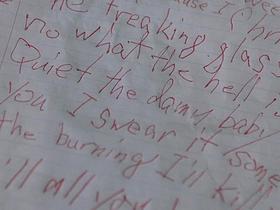 he freaking glas
no what the hell
Quiet the damn baby
you I swear if some
the burning I'll kill
'll all you